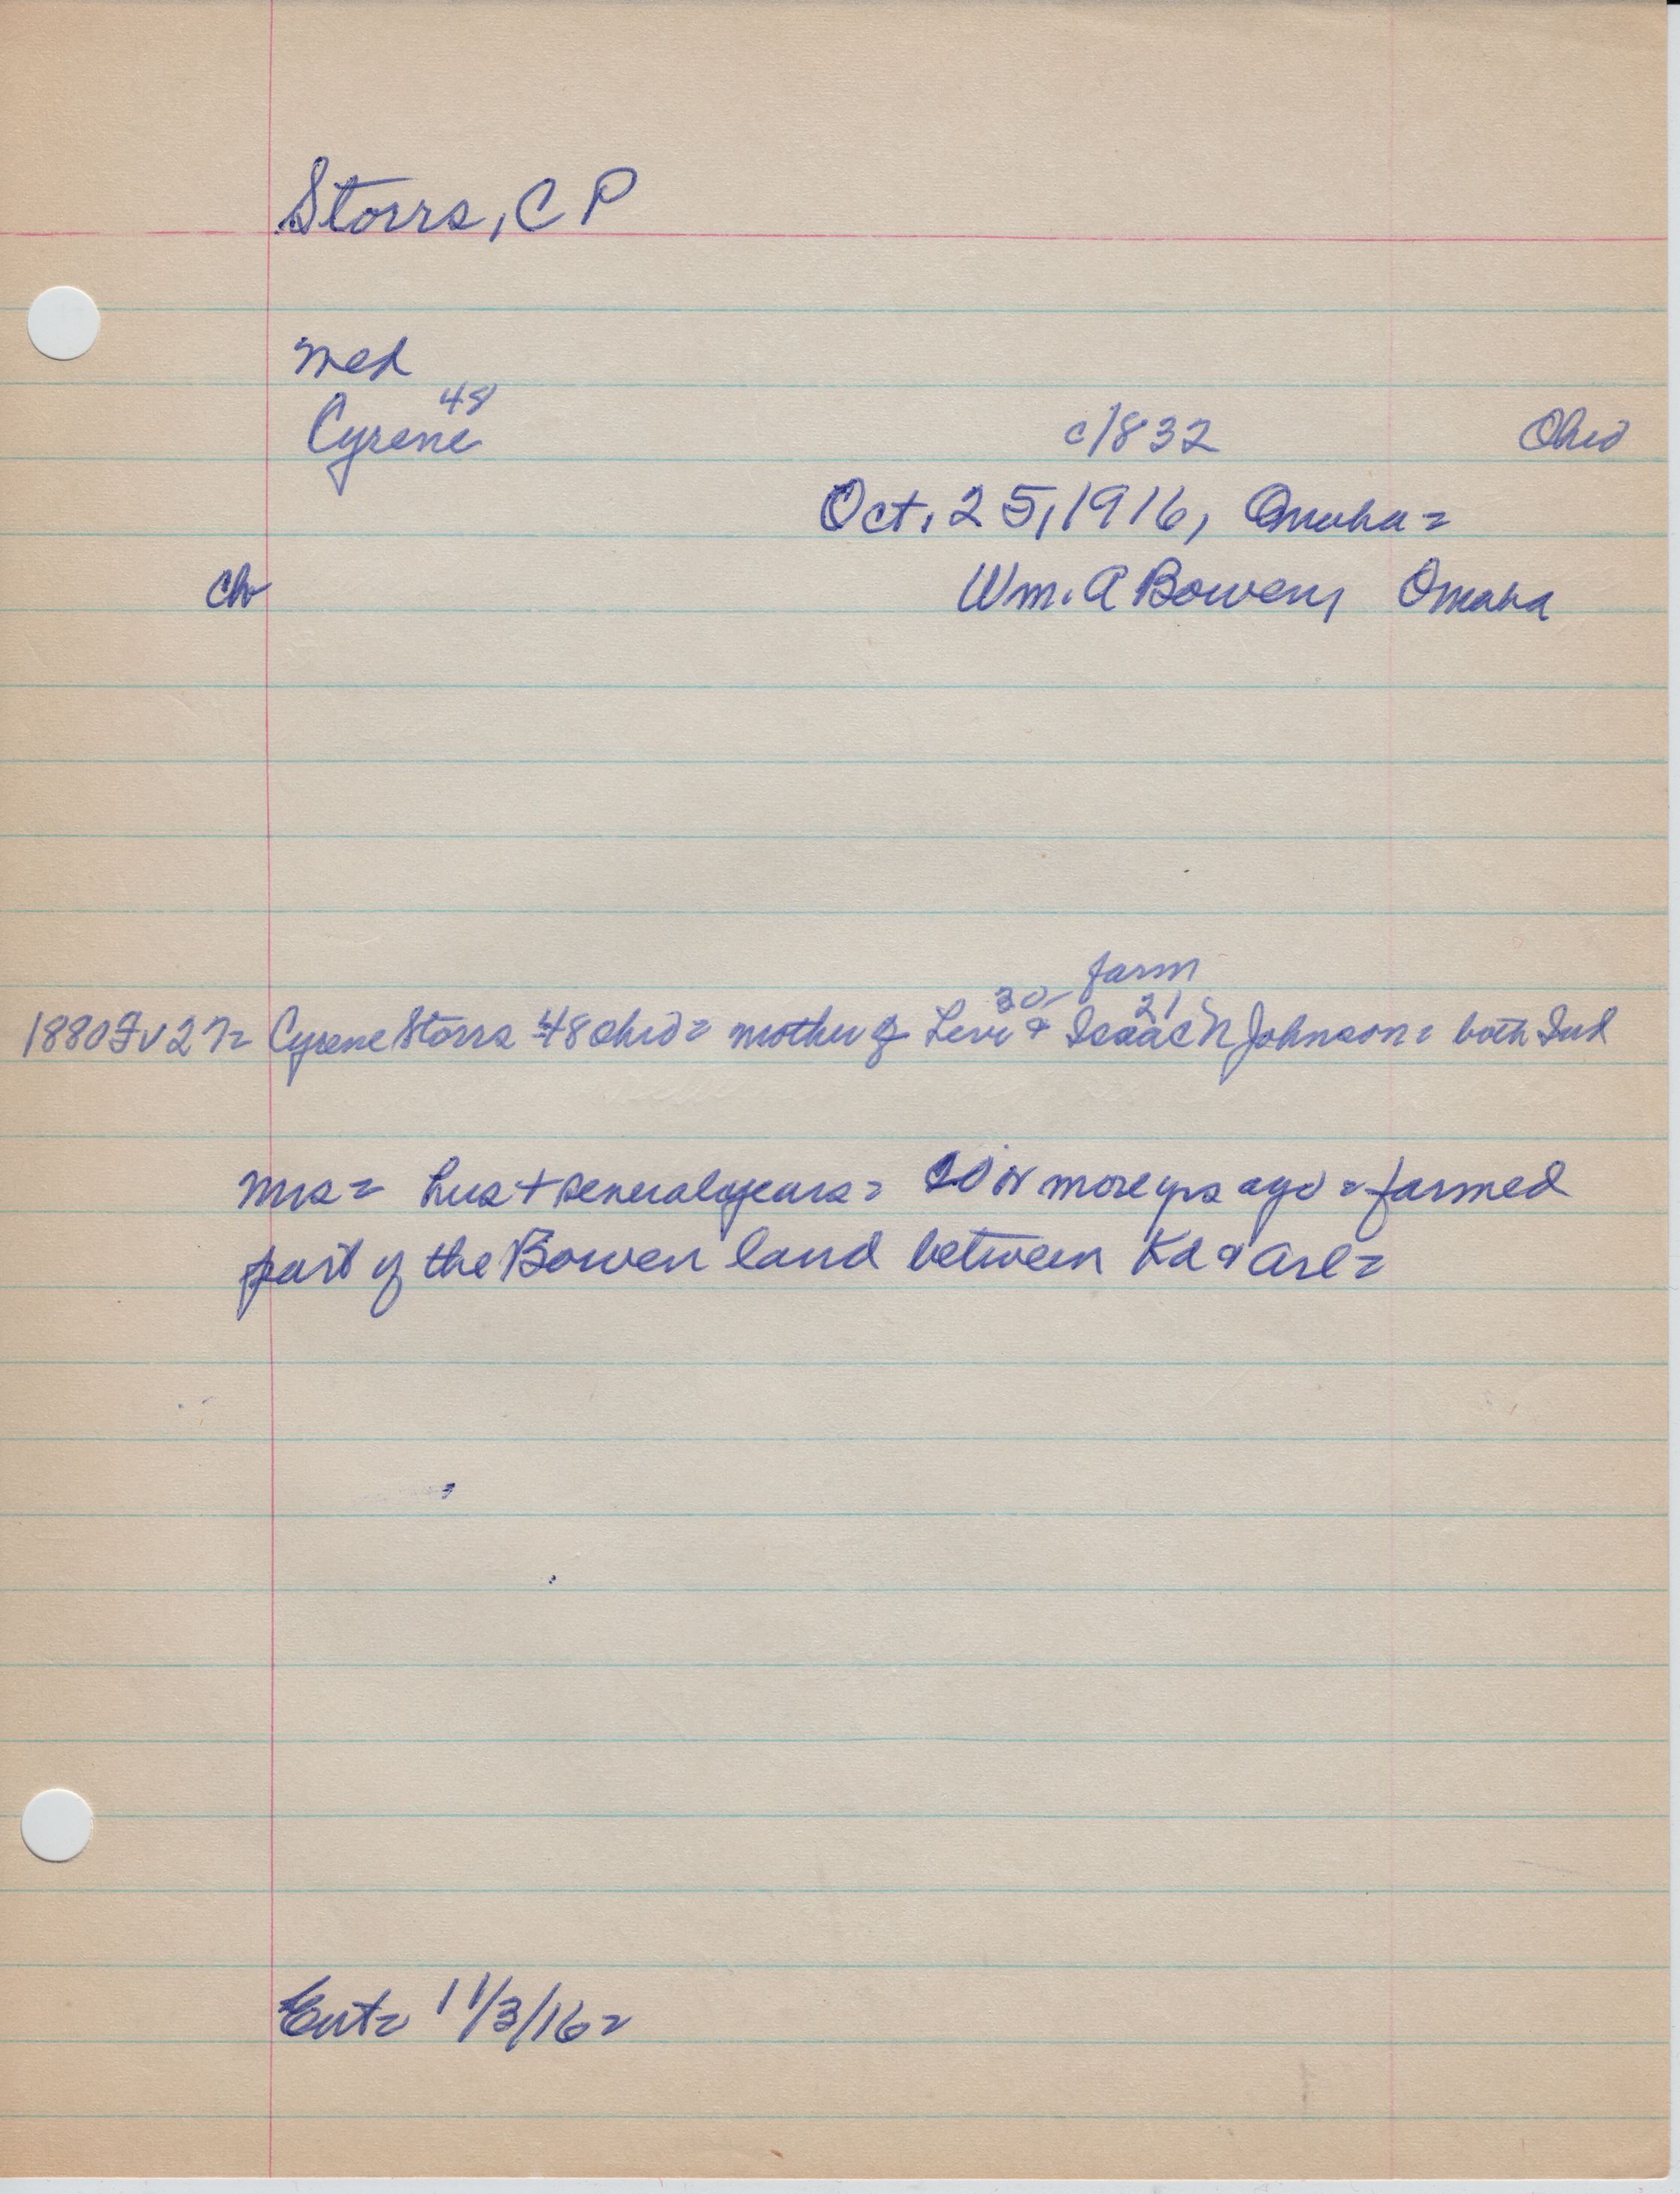 Storrs, C P
med
48
Cyrene c1832 Ohio
Oct. 25, 1916, Omaha =
ch Wm. A Bowen, Omaha
farm
30 21
1880 Fv 27= Cyrene Storrs 48 Ohio = mother of Levi & Isaac N Johnson = both Ind
Mrs = hus + several years = 20 or more yrs ago = farmed
part of the Bowen land between Kd & Arl =
Ent = 11/3/16 =